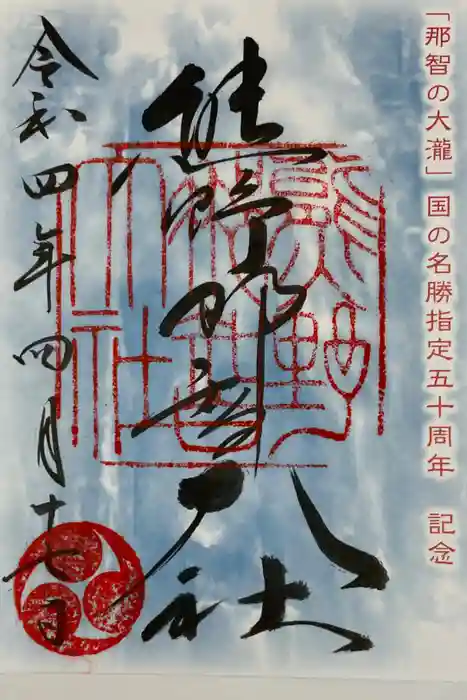 「那智の大瀧」国の名勝指定五十周年　記念
熊野那智大社
令和四年四月十七日
熊野
大社